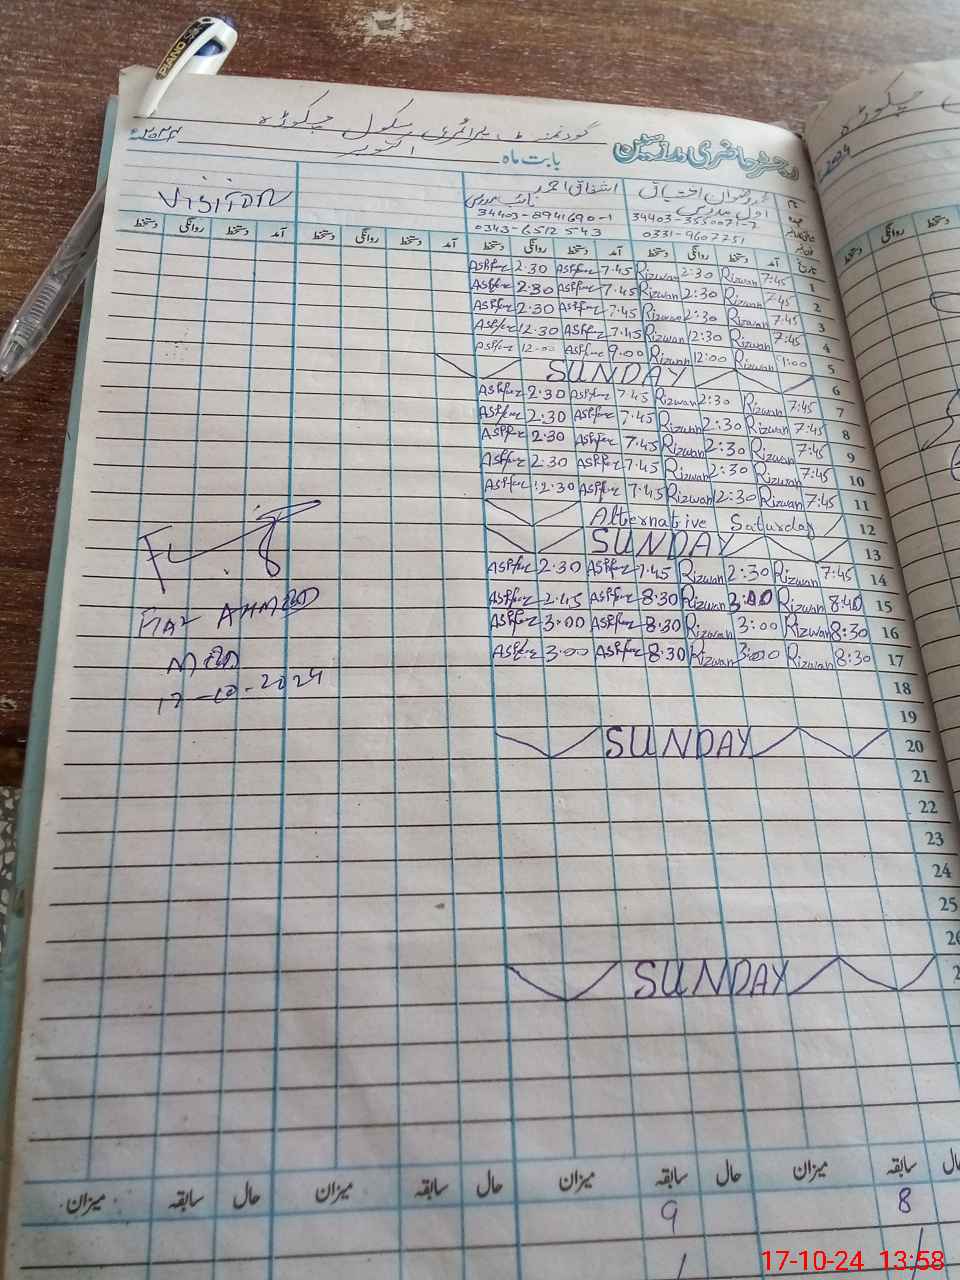 PIANO
گورنمنٹ پرائمری سکول
رجسٹر حاضری مدرسین
بابت ماہ اکتوبر ۲۰۲۴ء
2024
نام
اول مدرس
اشفاق احمد
نائب مدرس
VISITOR
34403-3550071-7
34403-8941690-1
0331-9607751
0343-6512543
تاریخ آمد دستخط روانگی دستخط آمد دستخط روانگی دستخط آمد دستخط روانگی دستخط آمد دستخط روانگی دستخط
روانگی دستخط
1 7:45 Rizwan 2:30 Rizwan 7.45 Ashfaq 2.30 Ashfaq
2 7:45 Rizwan 2:30 Rizwan 7.45 Ashfaq 2.30 Ashfaq
3 7:45 Rizwan 2:30 Rizwan 7.45 Ashfaq 2.30 Ashfaq
4 7:45 Rizwan 12:30 Rizwan 7.45 Ashfaq 12.30 Ashfaq
5 9:00 Rizwan 12:00 Rizwan 9.00 Ashfaq 12.00 Ashfaq
6 SUNDAY
7 7:45 Rizwan 2:30 Rizwan 7.45 Ashfaq 2.30 Ashfaq
8 7:45 Rizwan 2:30 Rizwan 7.45 Ashfaq 2.30 Ashfaq
9 7:45 Rizwan 2:30 Rizwan 7.45 Ashfaq 2.30 Ashfaq
10 7:45 Rizwan 2:30 Rizwan 7.45 Ashfaq 2.30 Ashfaq
11 7:45 Rizwan 12:30 Rizwan 7.45 Ashfaq 12.30 Ashfaq
12 Alternative Saturday
13 SUNDAY
14 7:45 Rizwan 2:30 Rizwan 7.45 Ashfaq 2.30 Ashfaq
15 8:40 Rizwan 3:00 Rizwan 8:30 Ashfaq 2.45 Ashfaq
16 8:30 Rizwan 3:00 Rizwan 8.30 Ashfaq 3.00 Ashfaq
17 8:30 Rizwan 3:00 Rizwan 8.30 Ashfaq 3.00 Ashfaq
AHMED
17-10-2024
18
19
20 SUNDAY
21
22
23
24
25
26
SUNDAY
حال سابقہ میزان حال سابقہ میزان حال سابقہ میزان حال سابقہ میزان
8 9
1 1
17-10-24 13:58